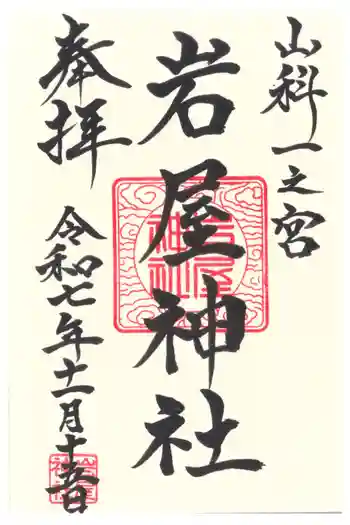 山科一之宮
岩屋神社
岩屋神社
奉拝
令和七年十一月十五日